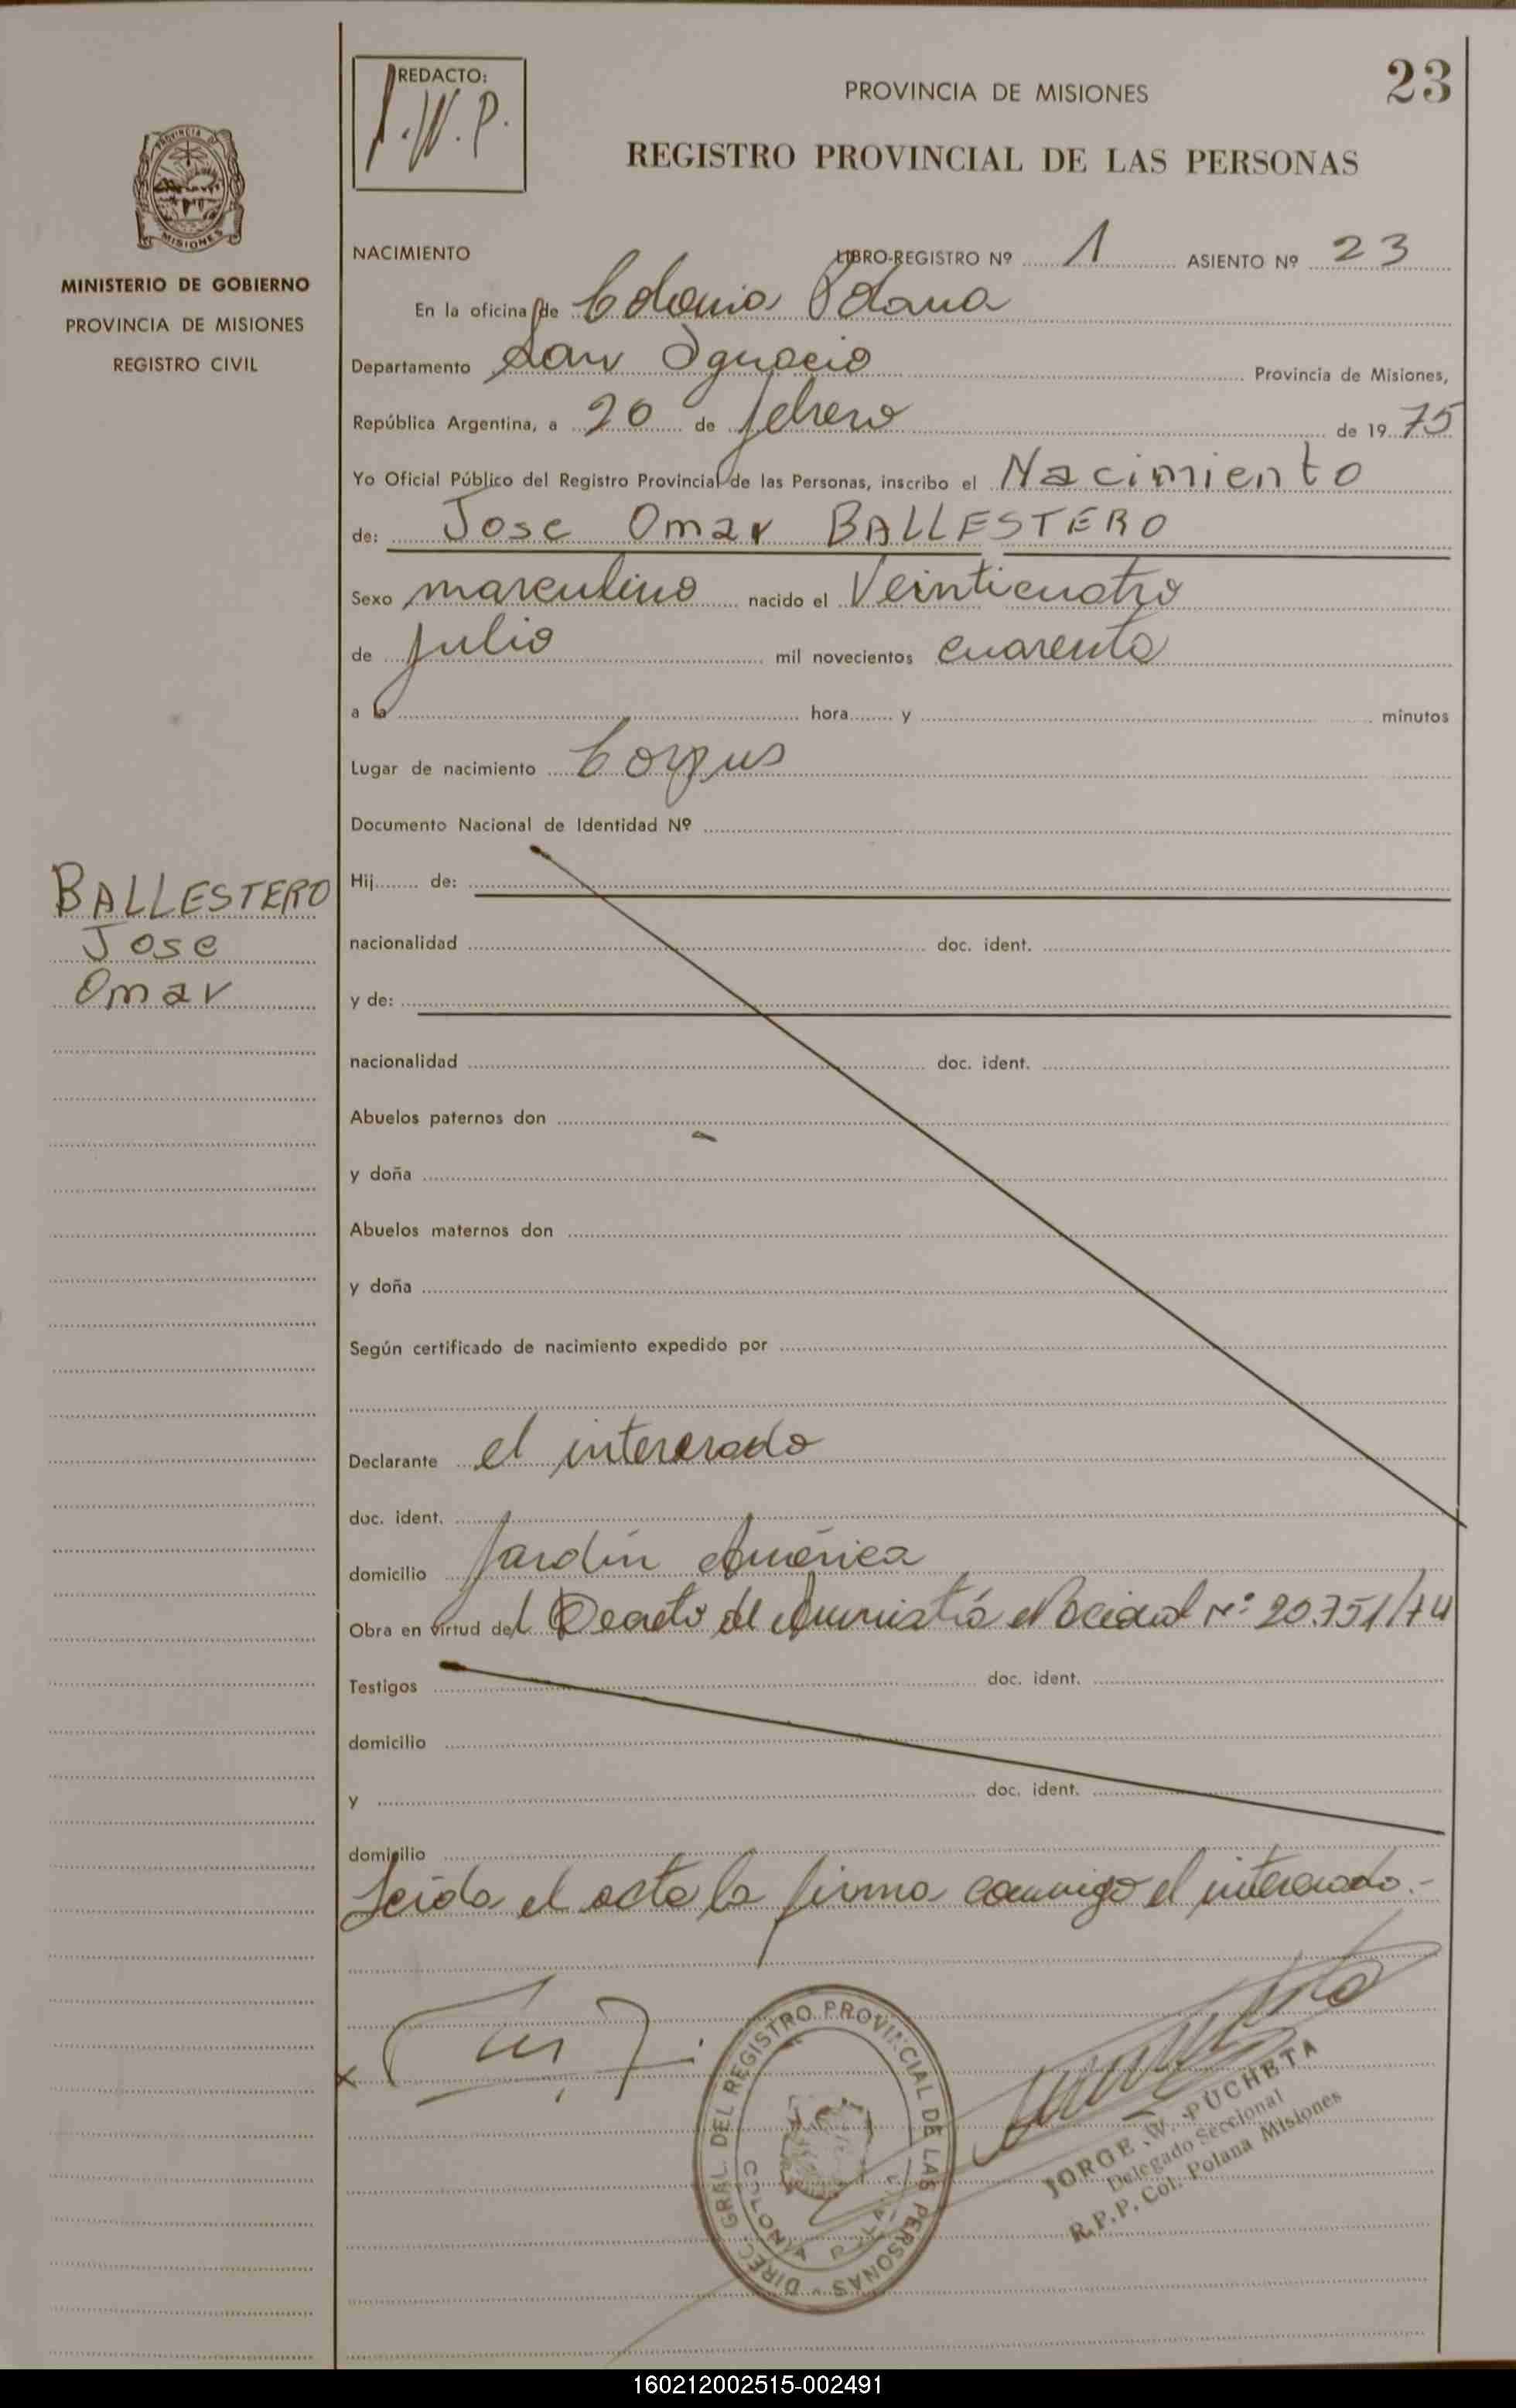 REDACTO:
J.W.P.
PROVINCIA DE MISIONES
23
REGISTRO PROVINCIAL DE LAS PERSONAS
PROVINCIA DE
MISIONES
MINISTERIO DE GOBIERNO
PROVINCIA DE MISIONES
REGISTRO CIVIL
NACIMIENTO LIBRO-REGISTRO Nº 1 ASIENTO Nº 23
En la oficina de Colonia Polana
Departamento San Ignacio Provincia de Misiones,
República Argentina, a 20 de febrero de 1975
Yo Oficial Público del Registro Provincial de las Personas, inscribo el Nacimiento
de: Jose Omar BALLESTERO
Sexo masculino nacido el Veinticuatro
de julio mil novecientos cuarenta
a la hora y minutos
Lugar de nacimiento Corpus
Documento Nacional de Identidad Nº
BALLESTERO
Jose
Omar
Hij de:
nacionalidad doc. ident.
y de:
nacionalidad doc. ident.
Abuelos paternos don
y doña
Abuelos maternos don
y doña
Según certificado de nacimiento expedido por
Declarante el interesado
doc. ident.
domicilio Jardín América
Obra en virtud del Decreto de Amnistía Nacional nº 20.751/74
Testigos doc. ident.
domicilio
y doc. ident.
domicilio
Leída el acta la firma conmigo el interesado.-
x
DIREC. GRAL. DEL REGISTRO PROVINCIAL DE LAS PERSONAS
COLONIA POLANA
JORGE W. PUCHETA
Delegado Seccional
R.P.P. Col. Polana Misiones
160212002515-002491